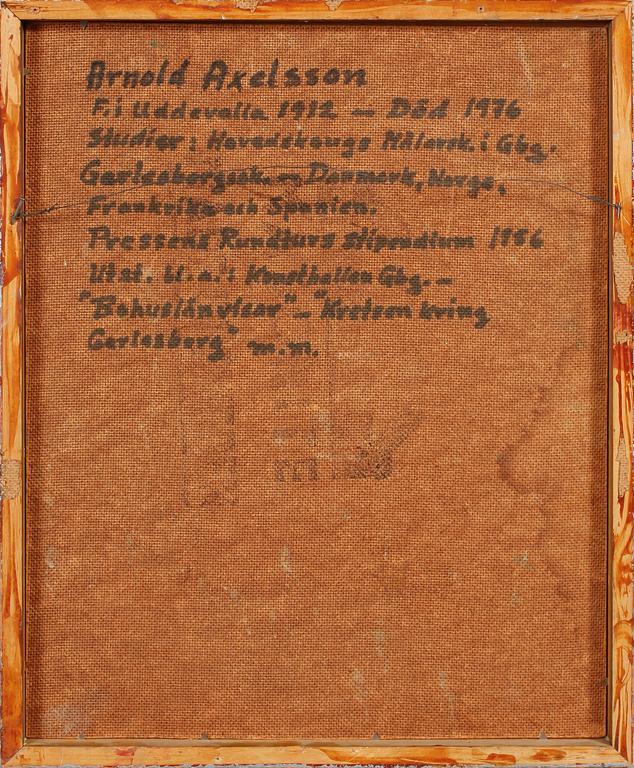 Arnold Axelsson
F. i Uddevalla 1912 — Död 1976
Studier: Hovedskougs Målarsk. i Gbg.
Gerlesborgssk. — Danmark, Norge,
Frankrike och Spanien.
Pressens Rundturs stipendium 1956
Utst. bl.a.: Konsthallen Gbg. —
"Bohuslänvisar" — "Kretsen kring
Gerlesborg" m.m.